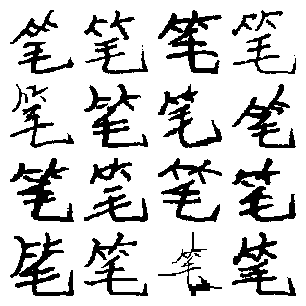 笔笔笔笔
笔笔笔笔
笔笔笔笔
笔笔笔笔